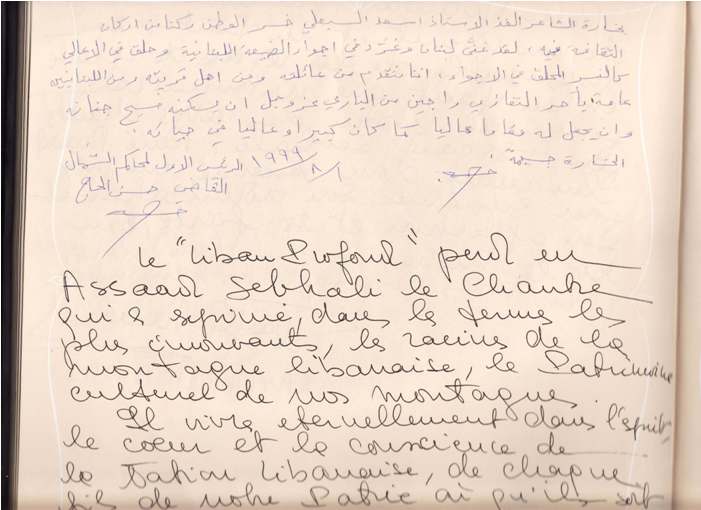 بخسارة الشاعر الفذ الاستاذ اسعد السبعلي خسر الوطن ركنا من اركان
الثقافة فيه، لقد غنّى لبنان وغرّد في اجواء الضيعة اللبنانية وحلق في الاعالي
كالنسر المحلق في الاجواء، اننا نتقدم من عائلته ومن اهل قريته ومن اللبنانيين
عامة بأحر التعازي راجين من الباري عز وجل ان يسكنه فسيح جنانه
وان يجعل له مقاما عاليا كما كان كبيرا وعاليا في حياته.
الخسارة جسيمة
١٩٩٩/٨/١ الرئيس الاول لمحاكم الشمال
القاضي حسن الحاج
Le "Liban Profond" perd en
Assaad Sebhali le Chantre
qui a exprimé, dans les termes les
plus émouvants, les racines de la
montagne libanaise, le Patrimoine
culturel de nos montagnes.
Il vivra eternellement dans l'esprit,
le coeur et la conscience de
la Nation libanaise, de chaque
fils de notre Patrie où qu'ils soit